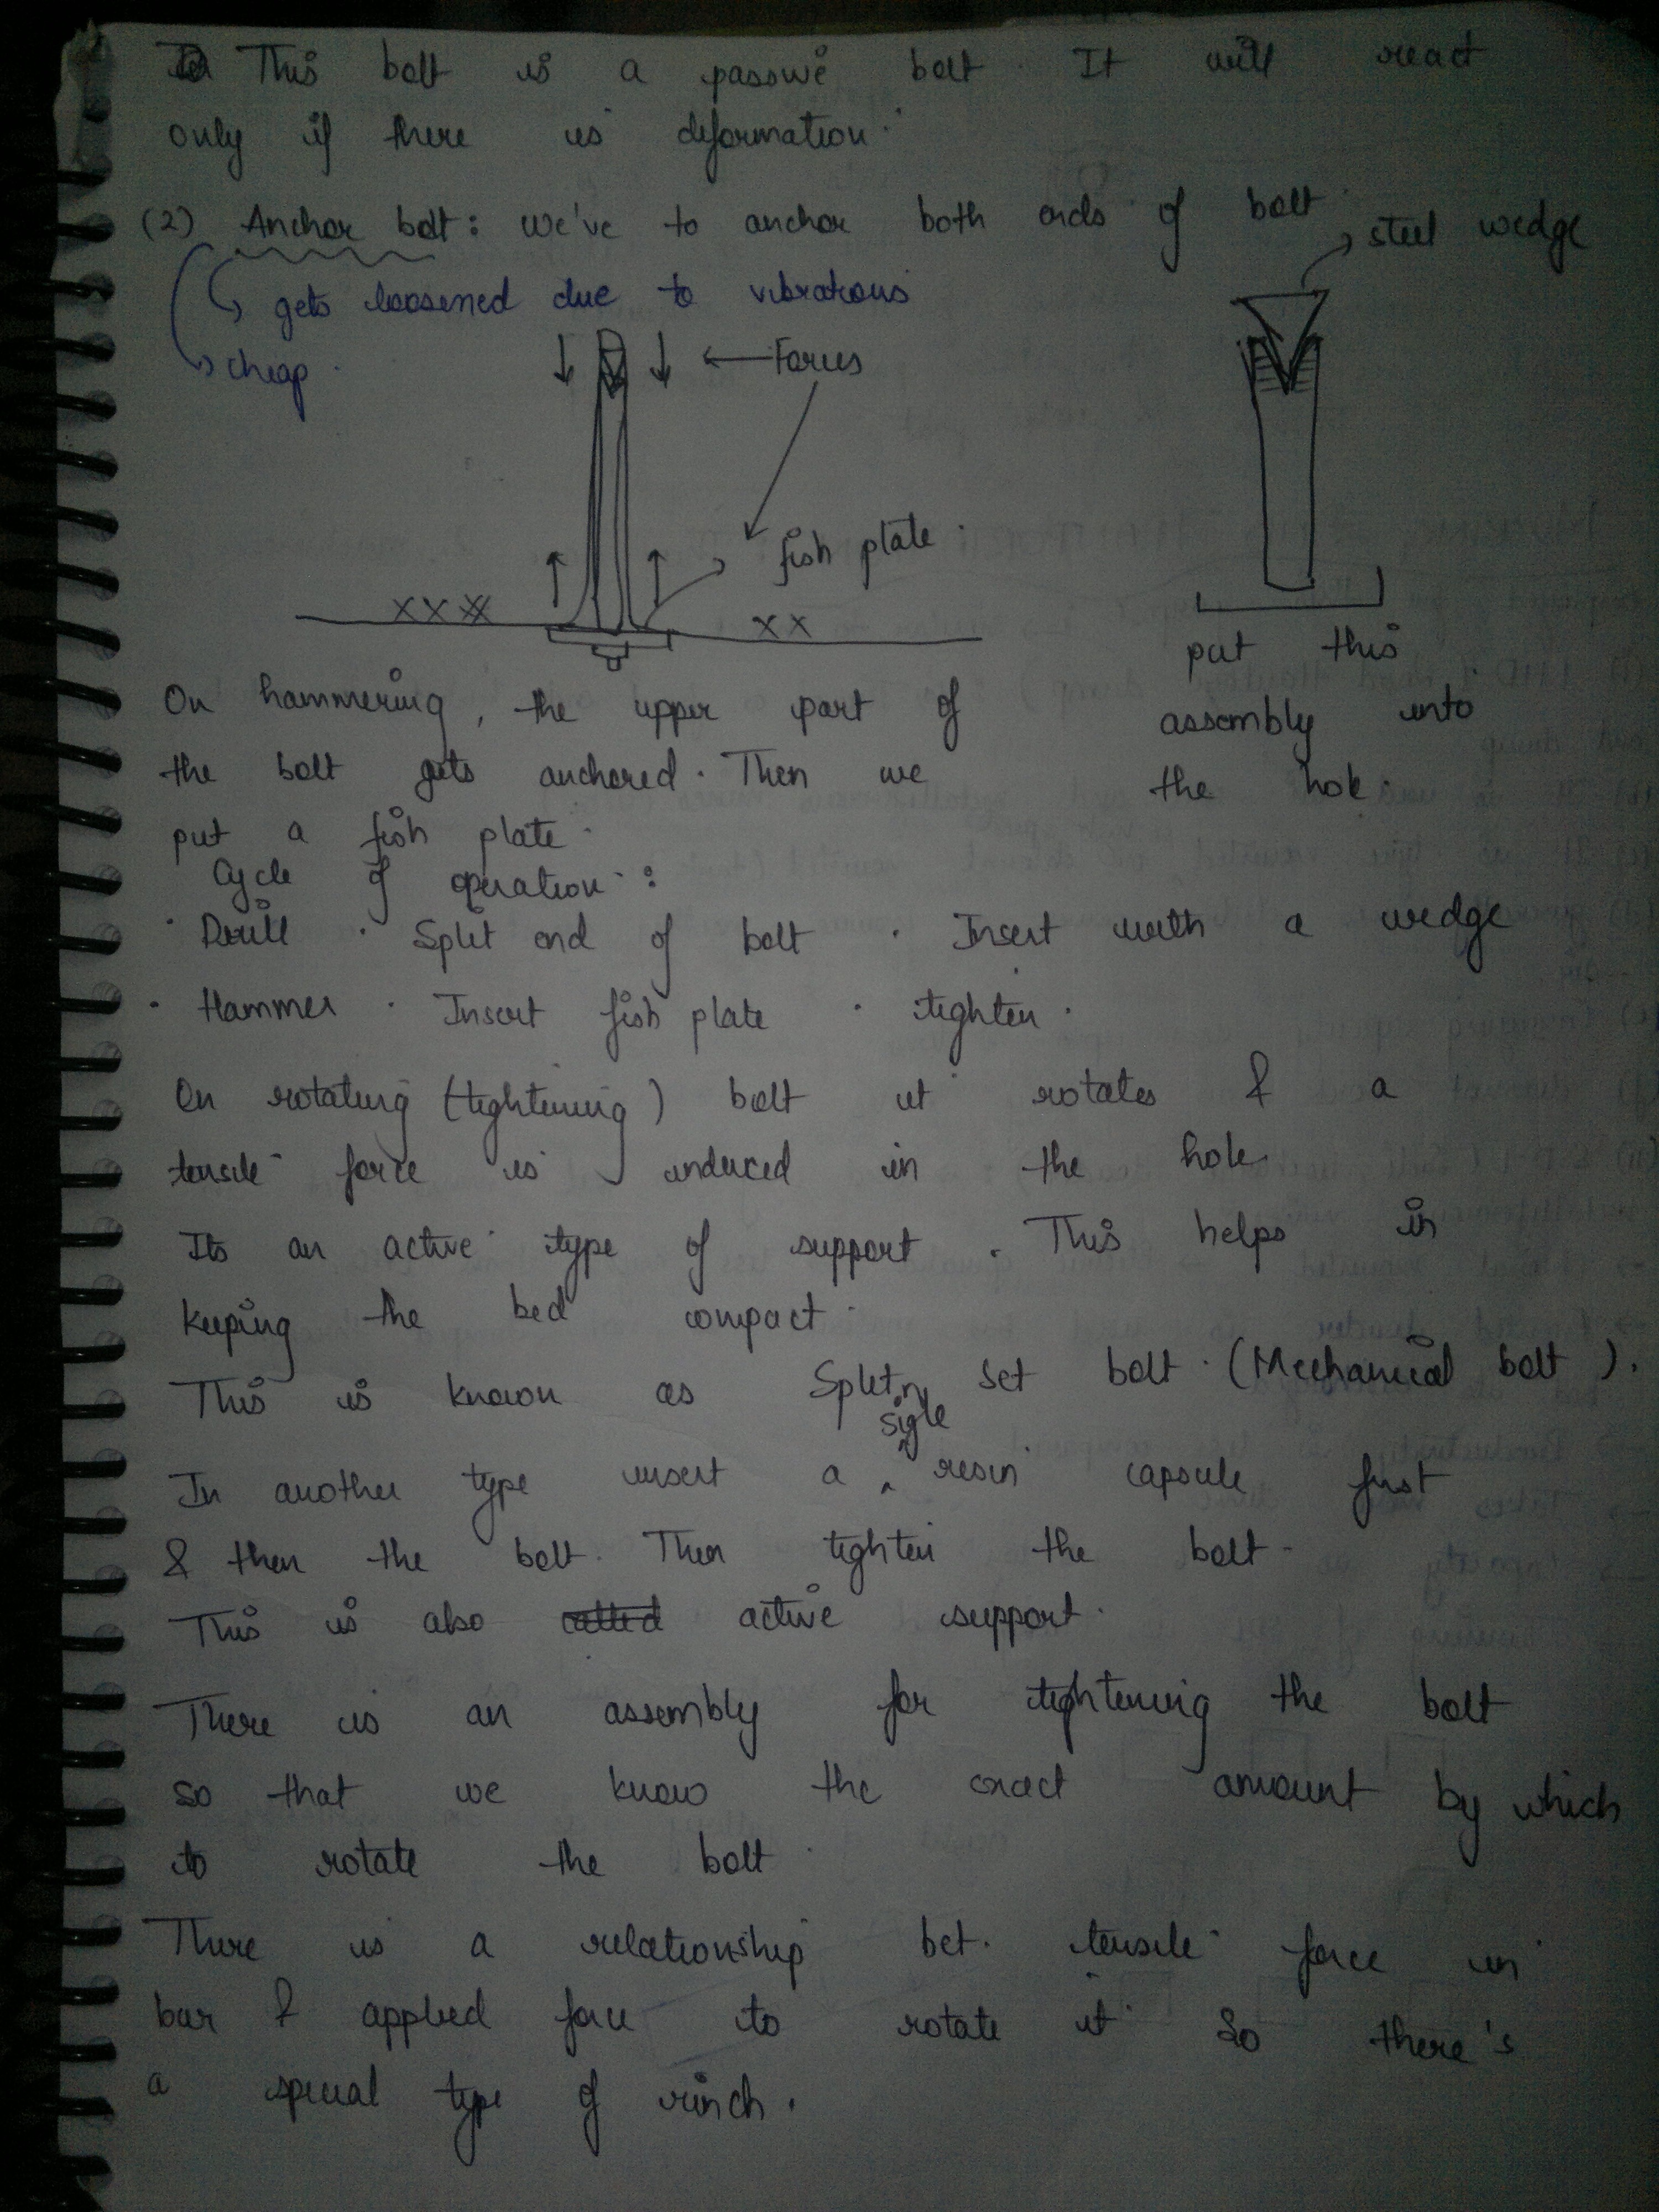 This bolt is a passive bolt. It will react
only if there is deformation.
(2) Anchor bolt: we've to anchor both ends of bolt.
steel wedge
gets loosened due to vibrations
cheap.
Forces
fish plate.
xx xx
xx
put this
assembly into
the hole.
On hammering, the upper part of
the bolt gets anchored. Then we
put a fish plate.
Cycle of operation:
· Drill · Split end of bolt · Insert with a wedge
· Hammer · Insert fish plate · tighten.
On rotating (tightening) bolt it rotates & a
tensile force is induced in the hole.
Its an active type of support. This helps in
keeping the bed compact.
This is known as Split set bolt. (Mechanical bolt).
In another type insert a sigle resin capsule first
& then the bolt. Then tighten the bolt.
This is also called active support.
There is an assembly for tightening the bolt
so that we know the exact amount by which
to rotate the bolt.
There is a relationship bet. tensile force in
bar & applied force to rotate it so there's
a special type of rinch.